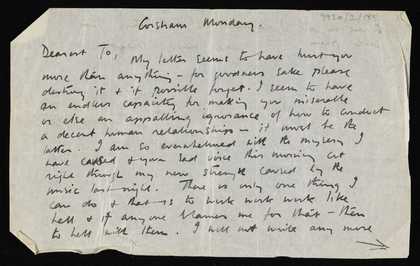 Corsham Monday.
Dearest To, My letter seems to have hurt you
more than anything – for goodness sake please
destroy it & if possible forget. I seem to have
an endless capacity for making you miserable
or else an appalling ignorance of how to conduct
a decent human relationships – it must be the
latter. I am so overwhelmed with the misery I
have caused & your sad voice this morning cut
right through my new strength caused by the
music last night. There is only one thing I
can do & that is to work work work like
hell & if anyone blames me for that – then
to hell with them. I will not write any more